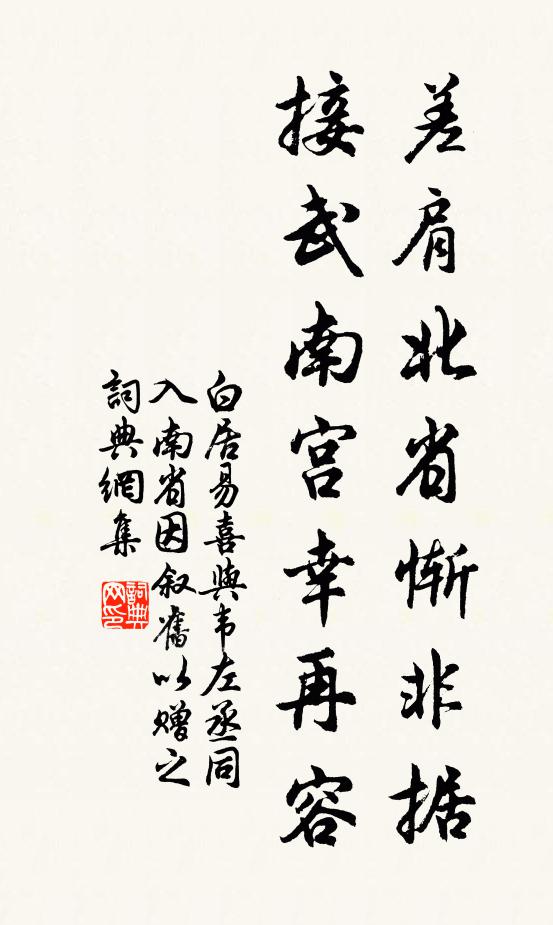 差肩北省惭非据
接武南宫幸再容
白居易喜與韦左丞同
入南省因叙舊以赠之
詞典網集
詞典
网印